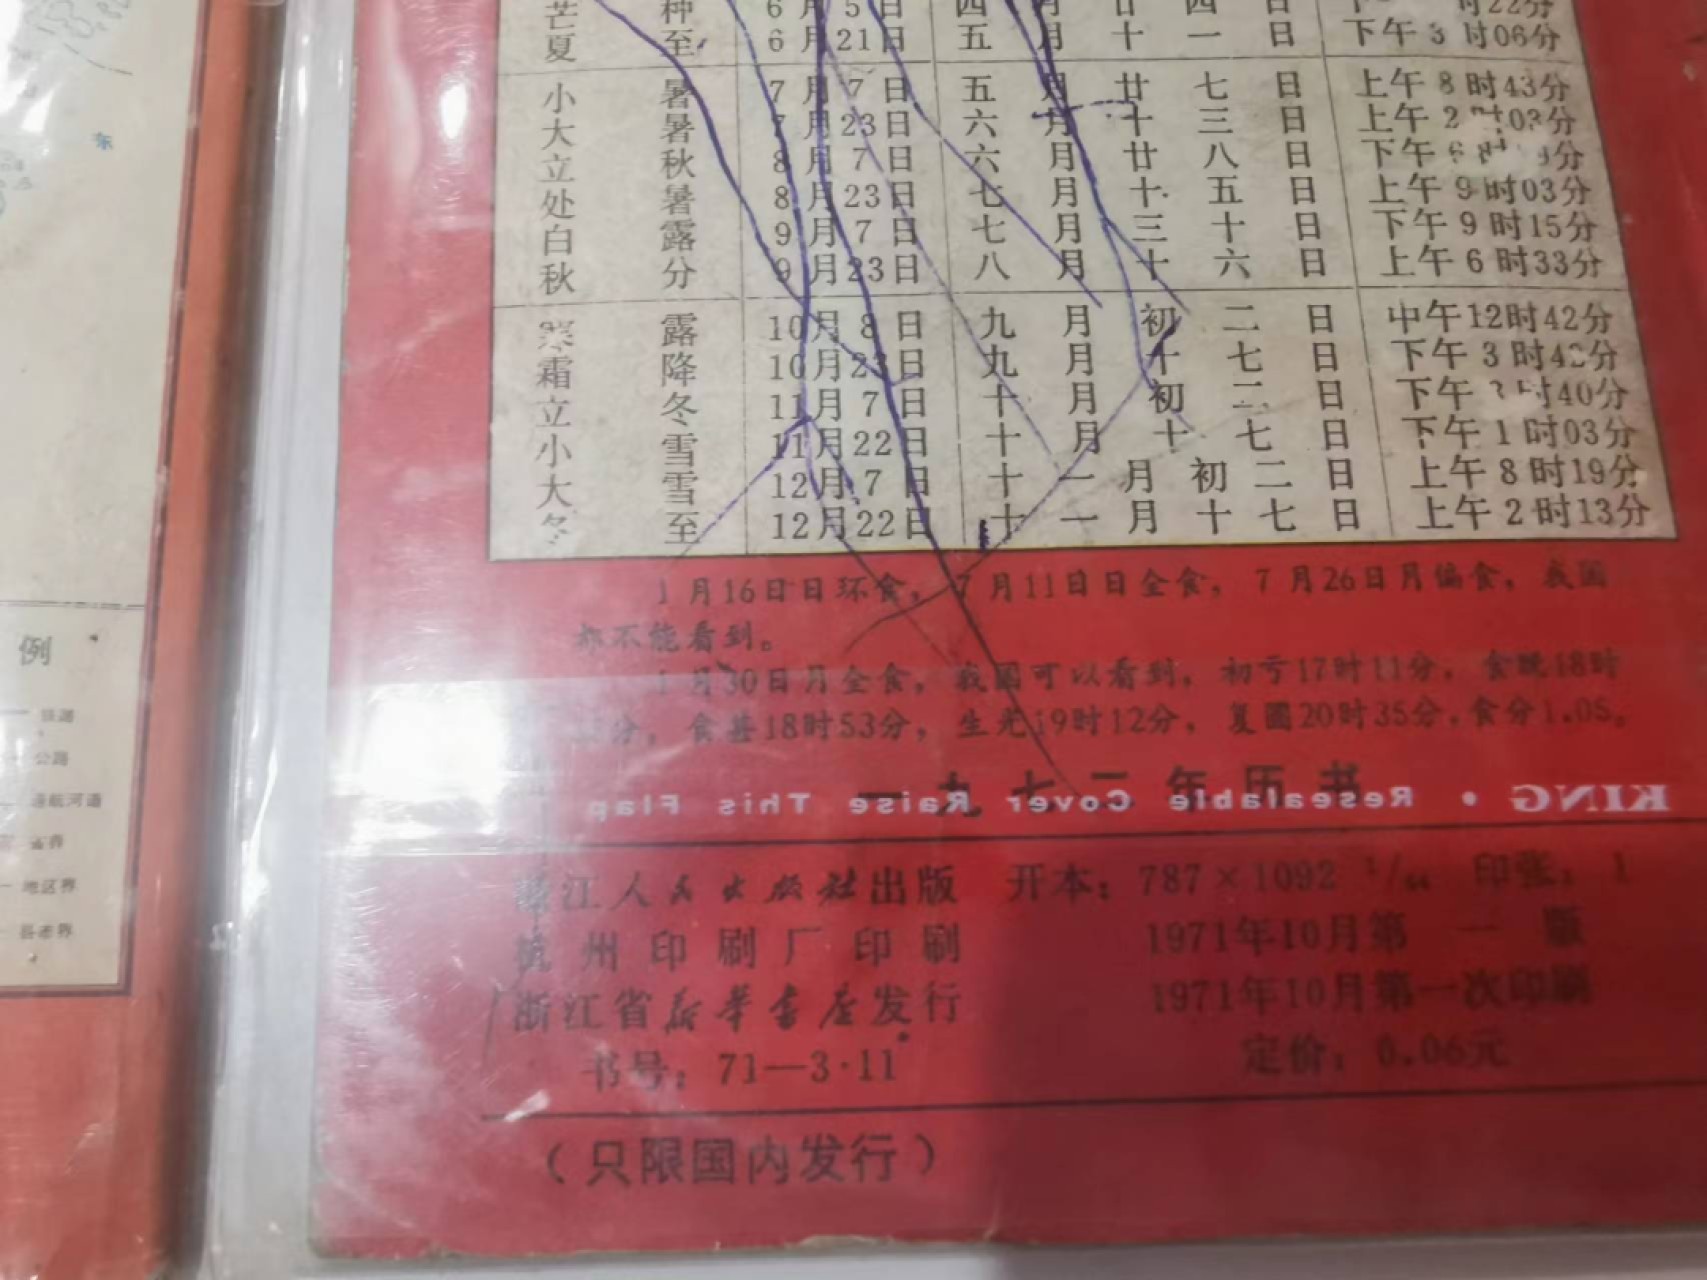 东
例
公路
通航河道
省界
地区界
县市界
芒 种 6月5日 四 月 廿 四 日 时22分
夏 至 6月21日 五 月 十 一 日 下午3时06分
小 暑 7月7日 五 月 廿 七 日 上午8时43分
大 暑 7月23日 六 月 十 三 日 上午2时03分
立 秋 8月7日 六 月 廿 八 日 下午6时 9分
处 暑 8月23日 七 月 十 五 日 上午9时03分
白 露 9月7日 七 月 三 十 日 下午9时15分
秋 分 9月23日 八 月 十 六 日 上午6时33分
寒 露 10月8日 九 月 初 二 日 中午12时42分
霜 降 10月23日 九 月 十 七 日 下午3时42分
立 冬 11月7日 十 月 初 二 日 下午3时40分
小 雪 11月22日 十 月 十 七 日 下午1时03分
大 雪 12月7日 十 一 月 初 二 日 上午8时19分
冬 至 12月22日 十 一 月 十 七 日 上午2时13分
1月16日日环食，7月11日日全食，7月26日月偏食，我国
都不能看到。
1月30日月全食，我国可以看到，初亏17时11分，食既18时
分，食甚18时53分，生光19时12分，复圆20时35分，食分1.05。
一九七二年历书
KING • Resealable Cover Raise This Flap
浙江人民出版社出版 开本：787×1092 1/64 印张：1
杭州印刷厂印刷 1971年10月第一版
浙江省新华书店发行 1971年10月第一次印刷
书号：71—3·11 定价：0.06元
（只限国内发行）